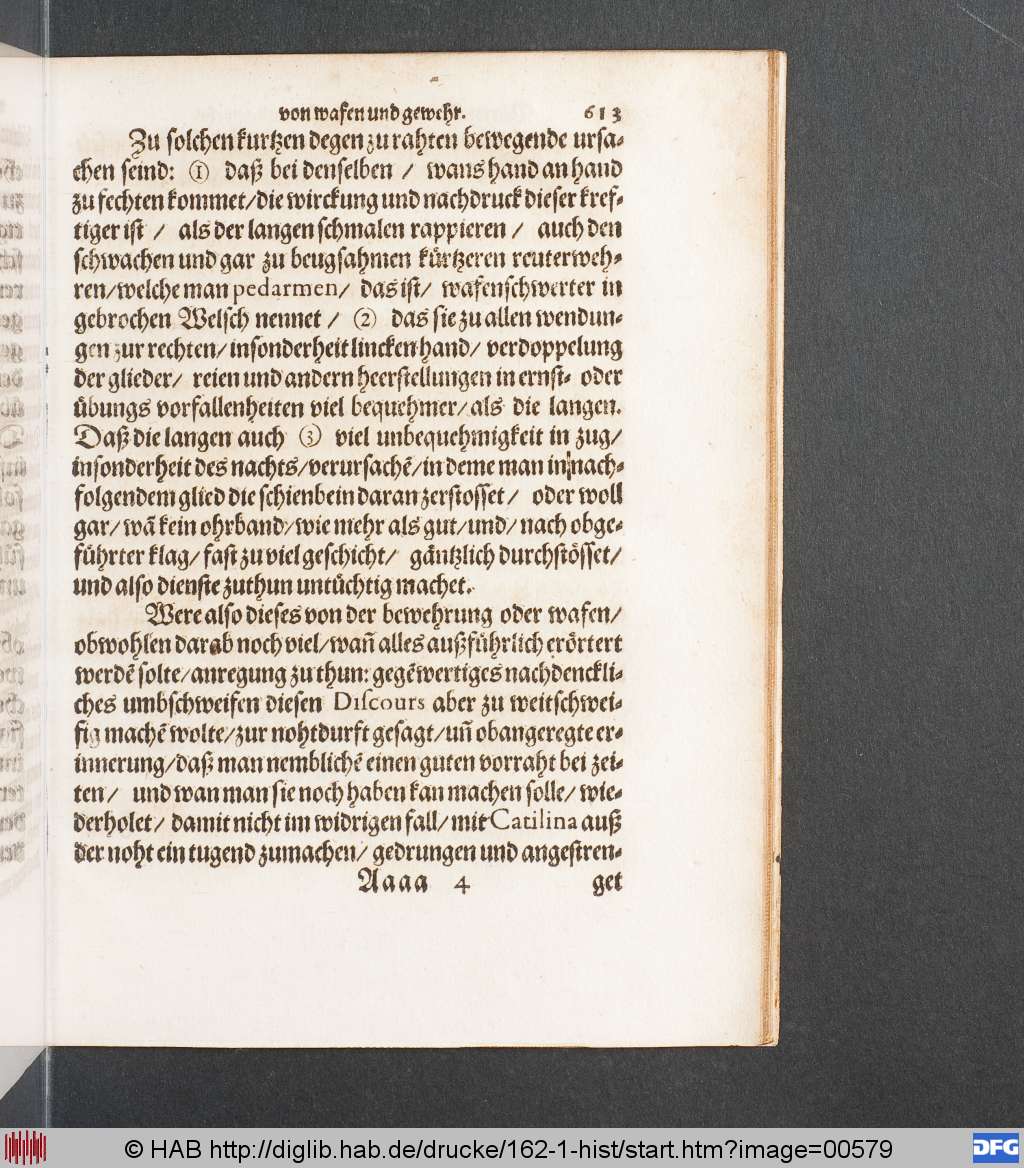 von wafen und gewehr. 613
Zu solchen kurtzen degen zu rahten bewegende ursa-
chen seind: ① daß bei denselben / wans hand an hand
zu fechten kommet/die wirckung und nachdruck dieser kref-
tiger ist / als der langen schmalen rappieren / auch den
schwachen und gar zu beugsahmen kürtzeren reuterweh-
ren/welche man pedarmen/ das ist/ wafenschwerter in
gebrochen Welsch nennet / ② das sie zu allen wendun-
gen zur rechten/insonderheit lincken hand/ verdoppelung
der glieder/ reien und andern heerstellungen in ernst- oder
übungs vorfallenheiten viel bequehmer/als die langen.
Daß die langen auch ③ viel unbequehmigkeit in zug/
insonderheit des nachts/verursachẽ/in deme man in nach-
folgendem glied die schienbein daran zerstosset/ oder woll
gar/wã kein ohrband/wie mehr als gut/und/nach obge-
führter klag/fast zu viel geschicht/ gäntzlich durchstösset/
und also dienste zuthun untüchtig machet.
Were also dieses von der bewehrung oder wafen/
obwohlen darab noch viel/wañ alles außführlich erörtert
werdẽ solte/anregung zu thun: gegẽwertiges nachdenckli-
ches umbschweifen diesen Discours aber zu weitschwei-
fig machẽ wolte/zur nohtdurft gesagt/uñ obangeregte er-
innerung/daß man nemblichẽ einen guten vorraht bei zei-
ten/ und wan man sie noch haben kan machen solle/ wie-
derholet/ damit nicht im widrigen fall/mit Catilina auß
der noht ein tugend zumachen/ gedrungen und angestren-
Aaaa 4 get
© HAB http://diglib.hab.de/drucke/162-1-hist/start.htm?image=00579
DFG